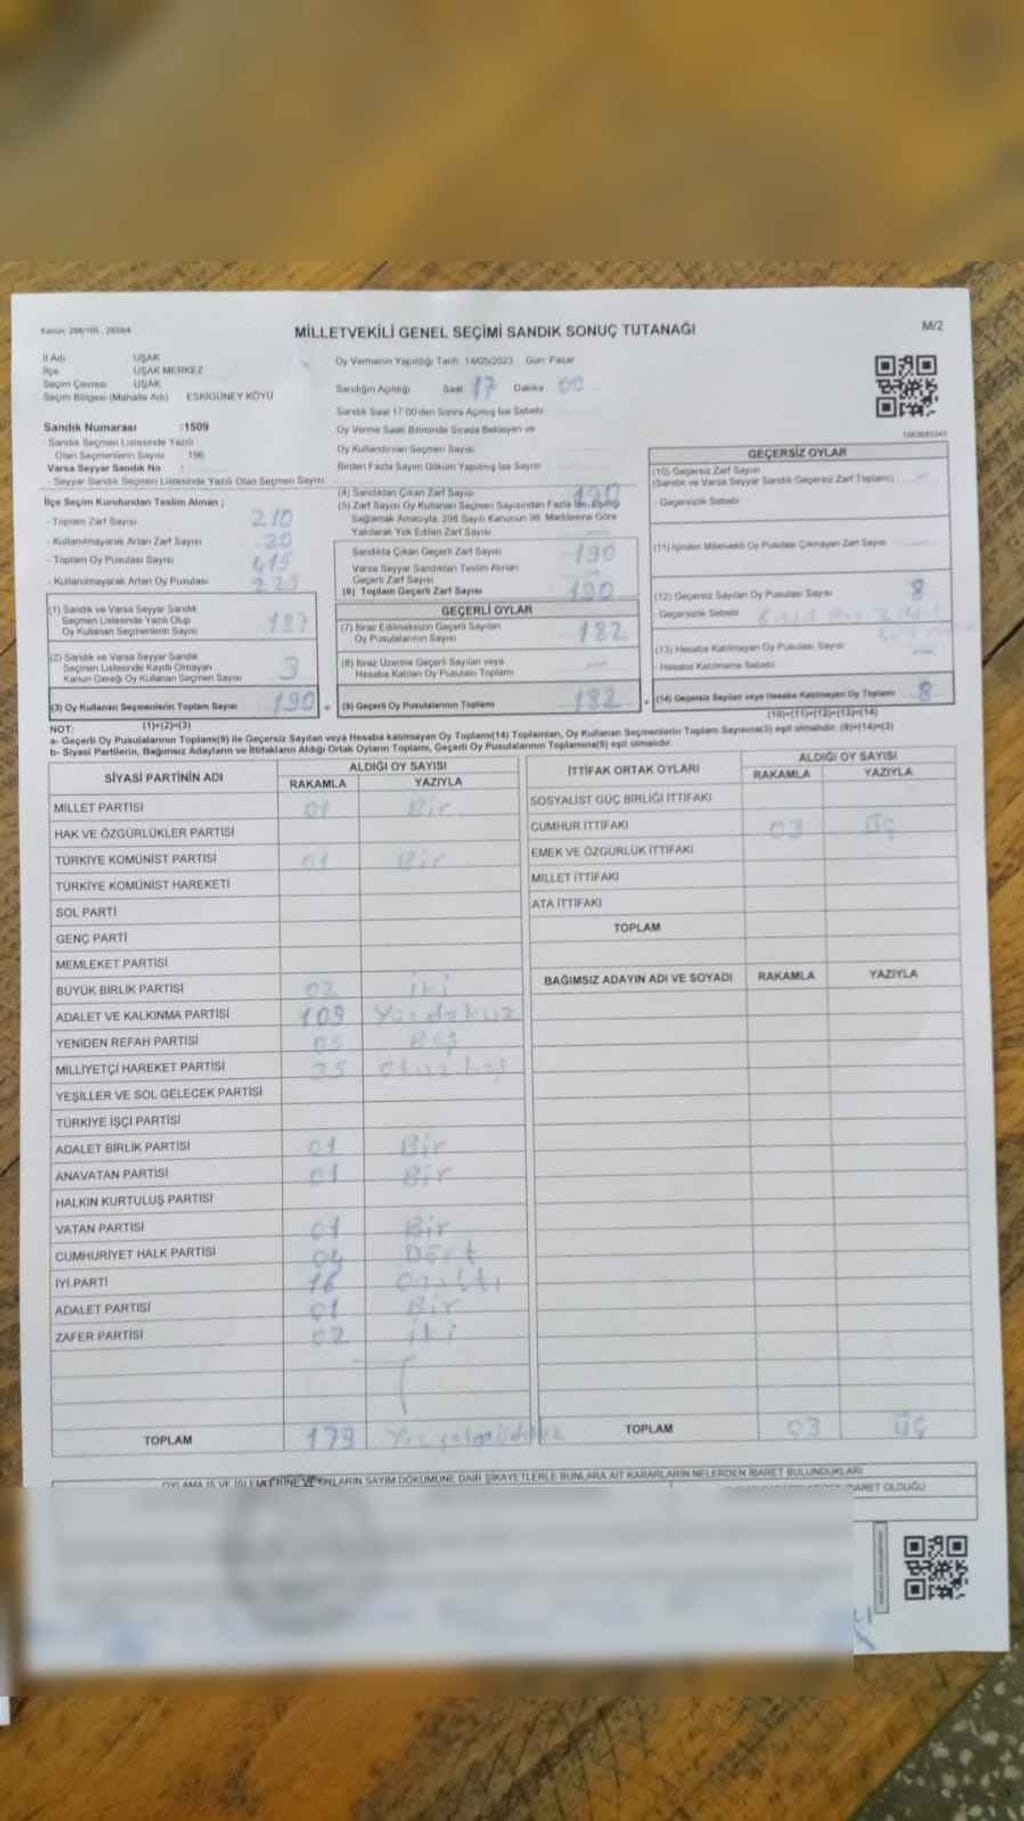 MİLLETVEKİLİ GENEL SEÇİMİ SANDIK SONUÇ TUTANAĞI
M/2
İl Adı UŞAK
İlçe UŞAK MERKEZ
Seçim Çevresi UŞAK
Seçim Bölgesi (Mahalle Adı) ESKİGÜNEY KÖYÜ
Sandık Numarası :1509
Sandık Seçmen Listesinde Yazılı
Olan Seçmenlerin Sayısı 196
Varsa Seyyar Sandık No :
Seyyar Sandık Seçmen Listesinde Yazılı Olan Seçmen Sayısı
Oy Vermenin Yapıldığı Tarih 14/05/2023 Gün: Pazar
Sandığın Açıldığı Saat 17 Dakika 00
Sandık Saat 17:00'den Sonra Açılmış İse Sebebi
Oy Verme Saati Bitiminde Sırada Bekleyen ve
Oy Kullandırılan Seçmen Sayısı
Birden Fazla Sayım Döküm Yapılmış İse Sayısı
İlçe Seçim Kurulundan Teslim Alınan ;
- Toplam Zarf Sayısı 210
- Kullanılmayarak Artan Zarf Sayısı 20
- Toplam Oy Pusulası Sayısı 415
- Kullanılmayarak Artan Oy Pusulası 225
(1) Sandık ve Varsa Seyyar Sandık
Seçmen Listesinde Yazılı Olup
Oy Kullanan Seçmenlerin Sayısı 187
(2) Sandık ve Varsa Seyyar Sandık
Seçmen Listesinde Kayıtlı Olmayan
Kanun Gereği Oy Kullanan Seçmen Sayısı 3
(3) Oy Kullanan Seçmenlerin Toplam Sayısı 190
(1)+(2)=(3)
(4) Sandıktan Çıkan Zarf Sayısı 190
(5) Zarf Sayısı Oy Kullanan Seçmen Sayısından Fazla İse, Eşitliği
Sağlamak Amacıyla, 298 Sayılı Kanunun 98. Maddesine Göre
Yakılarak Yok Edilen Zarf Sayısı
Sandıkta Çıkan Geçerli Zarf Sayısı 190
Varsa Seyyar Sandıktan Teslim Alınan
Geçerli Zarf Sayısı
(6) Toplam Geçerli Zarf Sayısı 190
GEÇERLİ OYLAR
(7) İtiraz Edilmeksizin Geçerli Sayılan
Oy Pusulalarının Sayısı 182
(8) İtiraz Üzerine Geçerli Sayılan veya
Hesaba Katılan Oy Pusulası Toplamı
(9) Geçerli Oy Pusulalarının Toplamı 182
GEÇERSİZ OYLAR
(10) Geçersiz Zarf Sayısı
(Sandık ve Varsa Seyyar Sandık Geçersiz Zarf Toplamı)
Geçersizlik Sebebi
(11) İçinden Milletvekili Oy Pusulası Çıkmayan Zarf Sayısı
(12) Geçersiz Sayılan Oy Pusulası Sayısı 8
Geçersizlik Sebebi
(13) Hesaba Katılmayan Oy Pusulası Sayısı
Hesaba Katılmama Sebebi
(14) Geçersiz Sayılan veya Hesaba Katılmayan Oy Toplamı 8
(10)+(11)+(12)+(13)=(14)
NOT:
a- Geçerli Oy Pusulalarının Toplamı(9) ile Geçersiz Sayılan veya Hesaba katılmayan Oy Toplamı(14) Toplamları, Oy Kullanan Seçmenlerin Toplam Sayısına(3) eşit olmalıdır. (9)+(14)=(3)
b- Siyasi Partilerin, Bağımsız Adayların ve İttifakların Aldığı Ortak Oyların Toplamı, Geçerli Oy Pusulalarının Toplamına(9) eşit olmalıdır.
SİYASİ PARTİNİN ADI ALDIĞI OY SAYISI
RAKAMLA YAZIYLA
MİLLET PARTİSİ 01 Bir
HAK VE ÖZGÜRLÜKLER PARTİSİ
TÜRKİYE KOMÜNİST PARTİSİ 01 Bir
TÜRKİYE KOMÜNİST HAREKETİ
SOL PARTİ
GENÇ PARTİ
MEMLEKET PARTİSİ
BÜYÜK BİRLİK PARTİSİ 02 iki
ADALET VE KALKINMA PARTİSİ 109 Yüzdokuz
YENİDEN REFAH PARTİSİ 05 Beş
MİLLİYETÇİ HAREKET PARTİSİ 35 Otuzbeş
YEŞİLLER VE SOL GELECEK PARTİSİ
TÜRKİYE İŞÇİ PARTİSİ
ADALET BİRLİK PARTİSİ 01 Bir
ANAVATAN PARTİSİ 01 Bir
HALKIN KURTULUŞ PARTİSİ
VATAN PARTİSİ 01 Bir
CUMHURİYET HALK PARTİSİ 04 Dört
İYİ PARTİ 16 Onaltı
ADALET PARTİSİ 01 Bir
ZAFER PARTİSİ 02 iki
TOPLAM 179 Yüzyetmişdokuz
İTTİFAK ORTAK OYLARI ALDIĞI OY SAYISI
RAKAMLA YAZIYLA
SOSYALİST GÜÇ BİRLİĞİ İTTİFAKI
CUMHUR İTTİFAKI 03 üç
EMEK VE ÖZGÜRLÜK İTTİFAKI
MİLLET İTTİFAKI
ATA İTTİFAKI
TOPLAM
BAĞIMSIZ ADAYIN ADI VE SOYADI RAKAMLA YAZIYLA
TOPLAM 03 üç